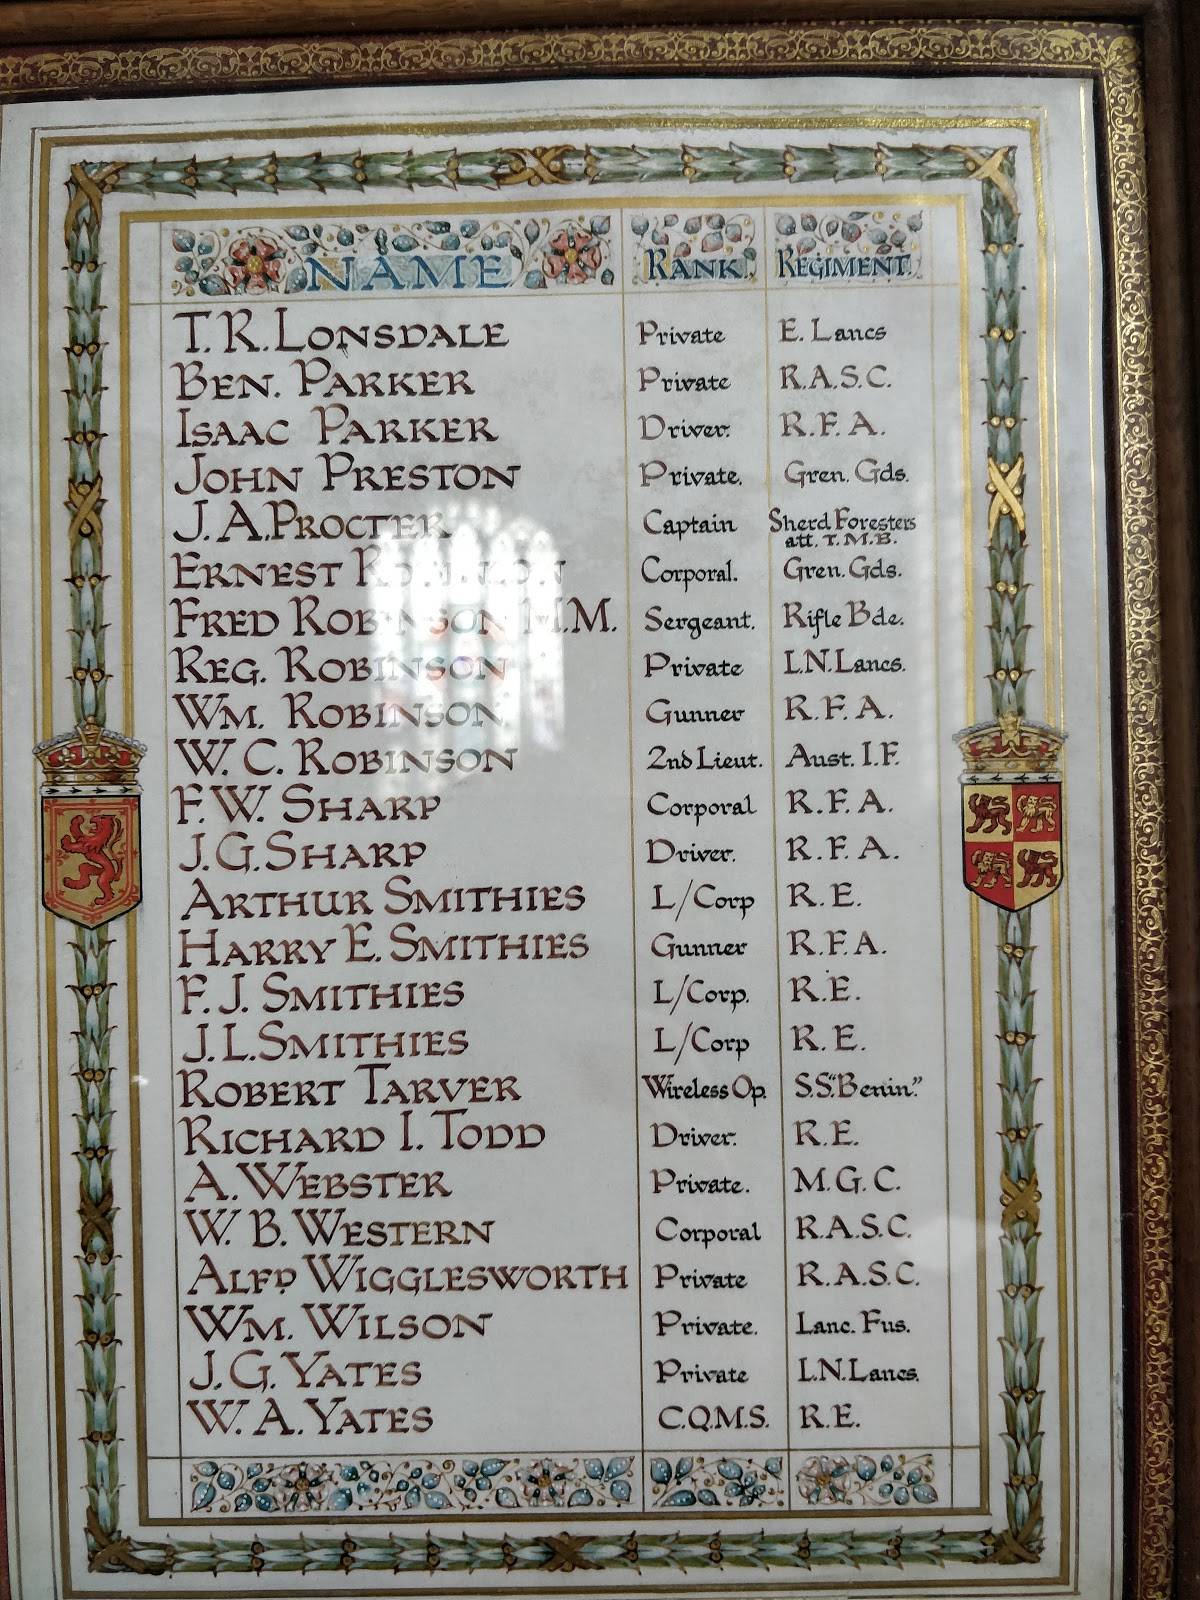 NAME RANK REGIMENT
T. R. LONSDALE Private E. Lancs
BEN. PARKER Private R.A.S.C.
ISAAC PARKER Driver. R.F.A.
JOHN PRESTON Private. Gren. Gds.
J. A. PROCTER Captain Sherd Foresters
att. T.M.B.
ERNEST ROBINSON Corporal. Gren. Gds.
FRED ROBINSON M.M. Sergeant. Rifle Bde.
REG. ROBINSON Private L.N.Lancs.
WM. ROBINSON Gunner R.F.A.
W. C. ROBINSON 2nd Lieut. Aust. I.F.
F. W. SHARP Corporal R.F.A.
J. G. SHARP Driver. R.F.A.
ARTHUR SMITHIES L/Corp R.E.
HARRY E. SMITHIES Gunner R.F.A.
F. J. SMITHIES L/Corp. R.E.
J. L. SMITHIES L/Corp R.E.
ROBERT TARVER Wireless Op. S.S. "Benin."
RICHARD I. TODD Driver. R.E.
A. WEBSTER Private. M.G.C.
W. B. WESTERN Corporal R.A.S.C.
ALFD WIGGLESWORTH Private R.A.S.C.
WM. WILSON Private. Lanc. Fus.
J. G. YATES Private L.N.Lancs.
W. A. YATES C.Q.M.S. R.E.